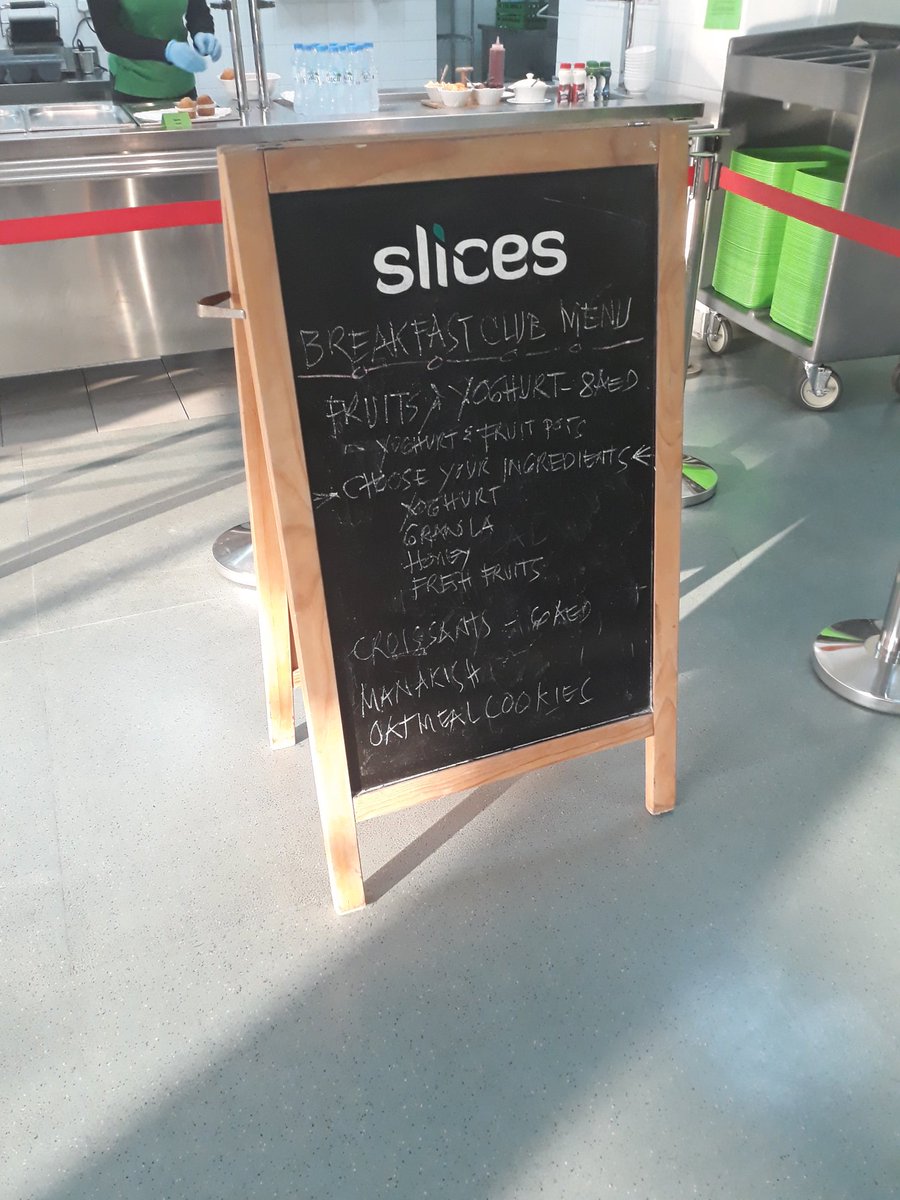 slices
BREAKFAST CLUB MENU
FRUITS & YOGHURT - 8AED
- YOGHURT & FRUIT POTS
CHOOSE YOUR INGREDIENTS
YOGHURT
GRANOLA
HONEY
FRESH FRUITS
CROISSANTS - 6AED
MANAKISH
OATMEAL COOKIES